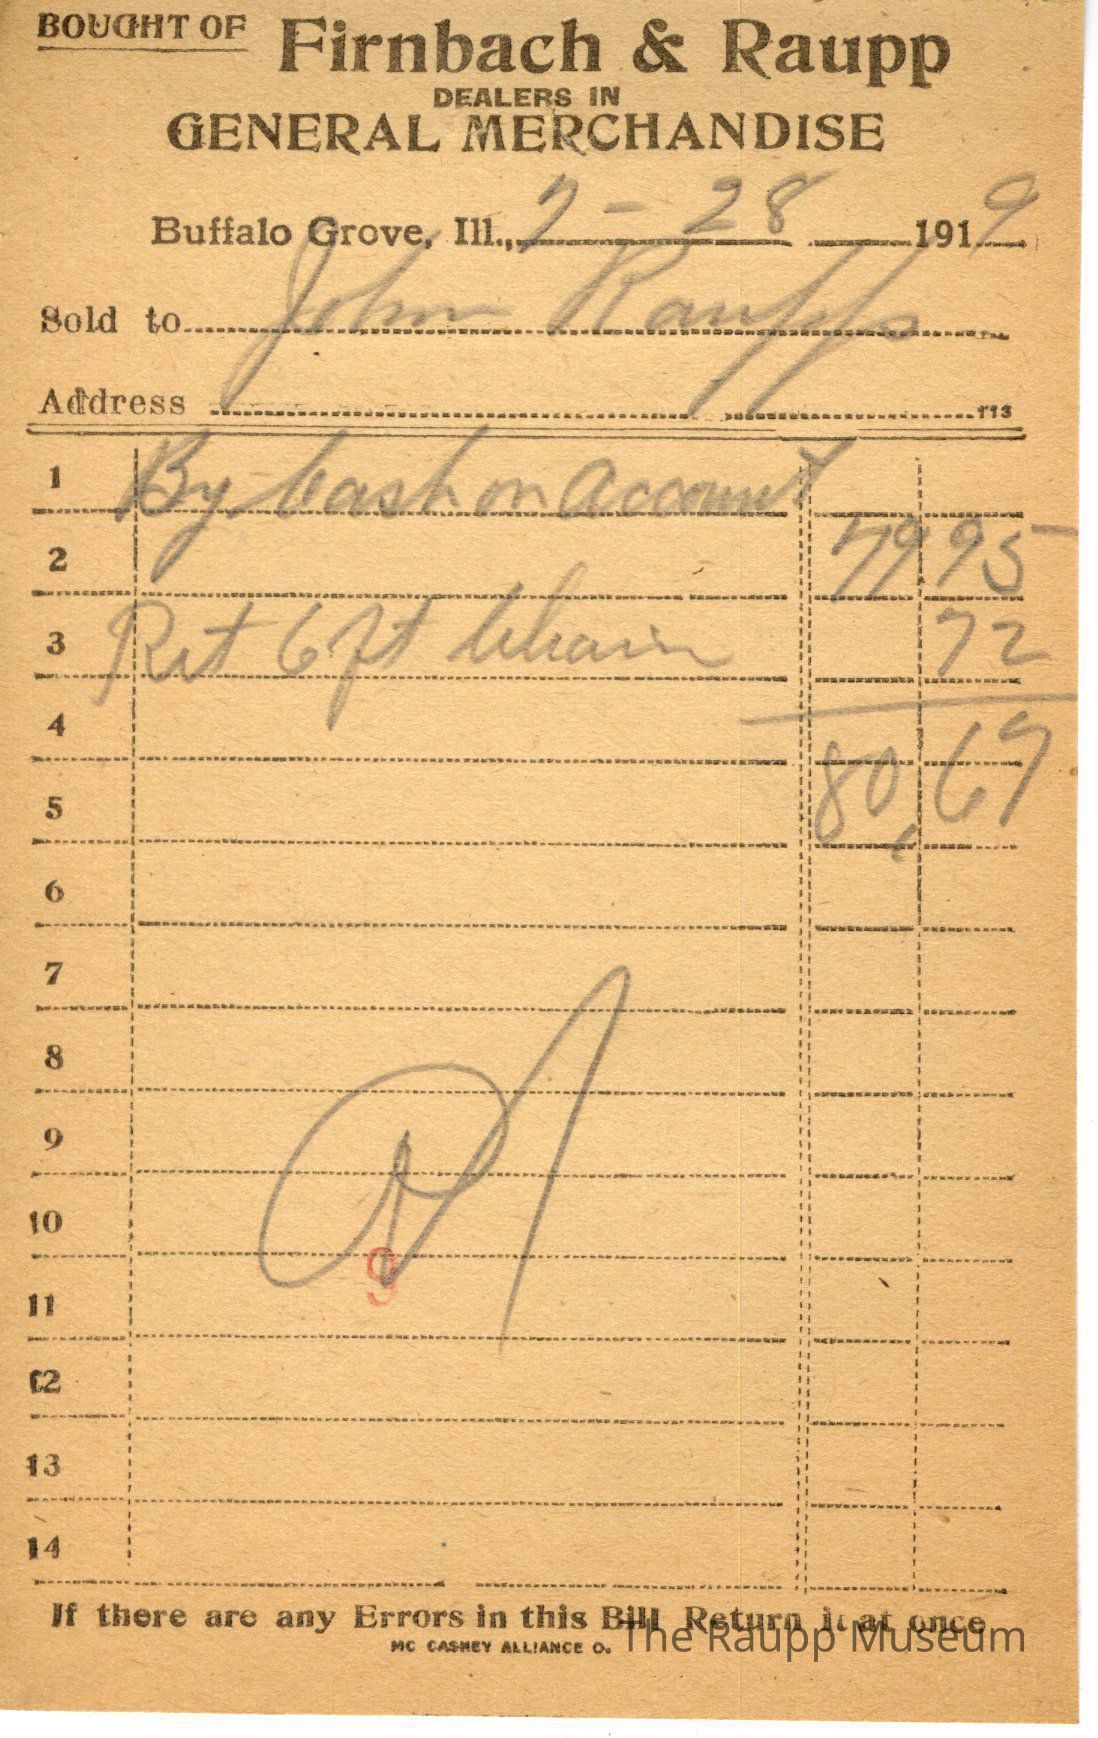 BOUGHT OF Firnbach & Raupp
DEALERS IN
GENERAL MERCHANDISE
Buffalo Grove, Ill., 7-28 1919
Sold to John Raupp
Address 113
1 By Cash on Account
2 79 95
3 Ret 6 ft Chain 72
4
5 80,67
6
7
8
9
10
9
11
12
13
14
If there are any Errors in this Bill Return it at once
MC CASKEY ALLIANCE O.
The Raupp Museum